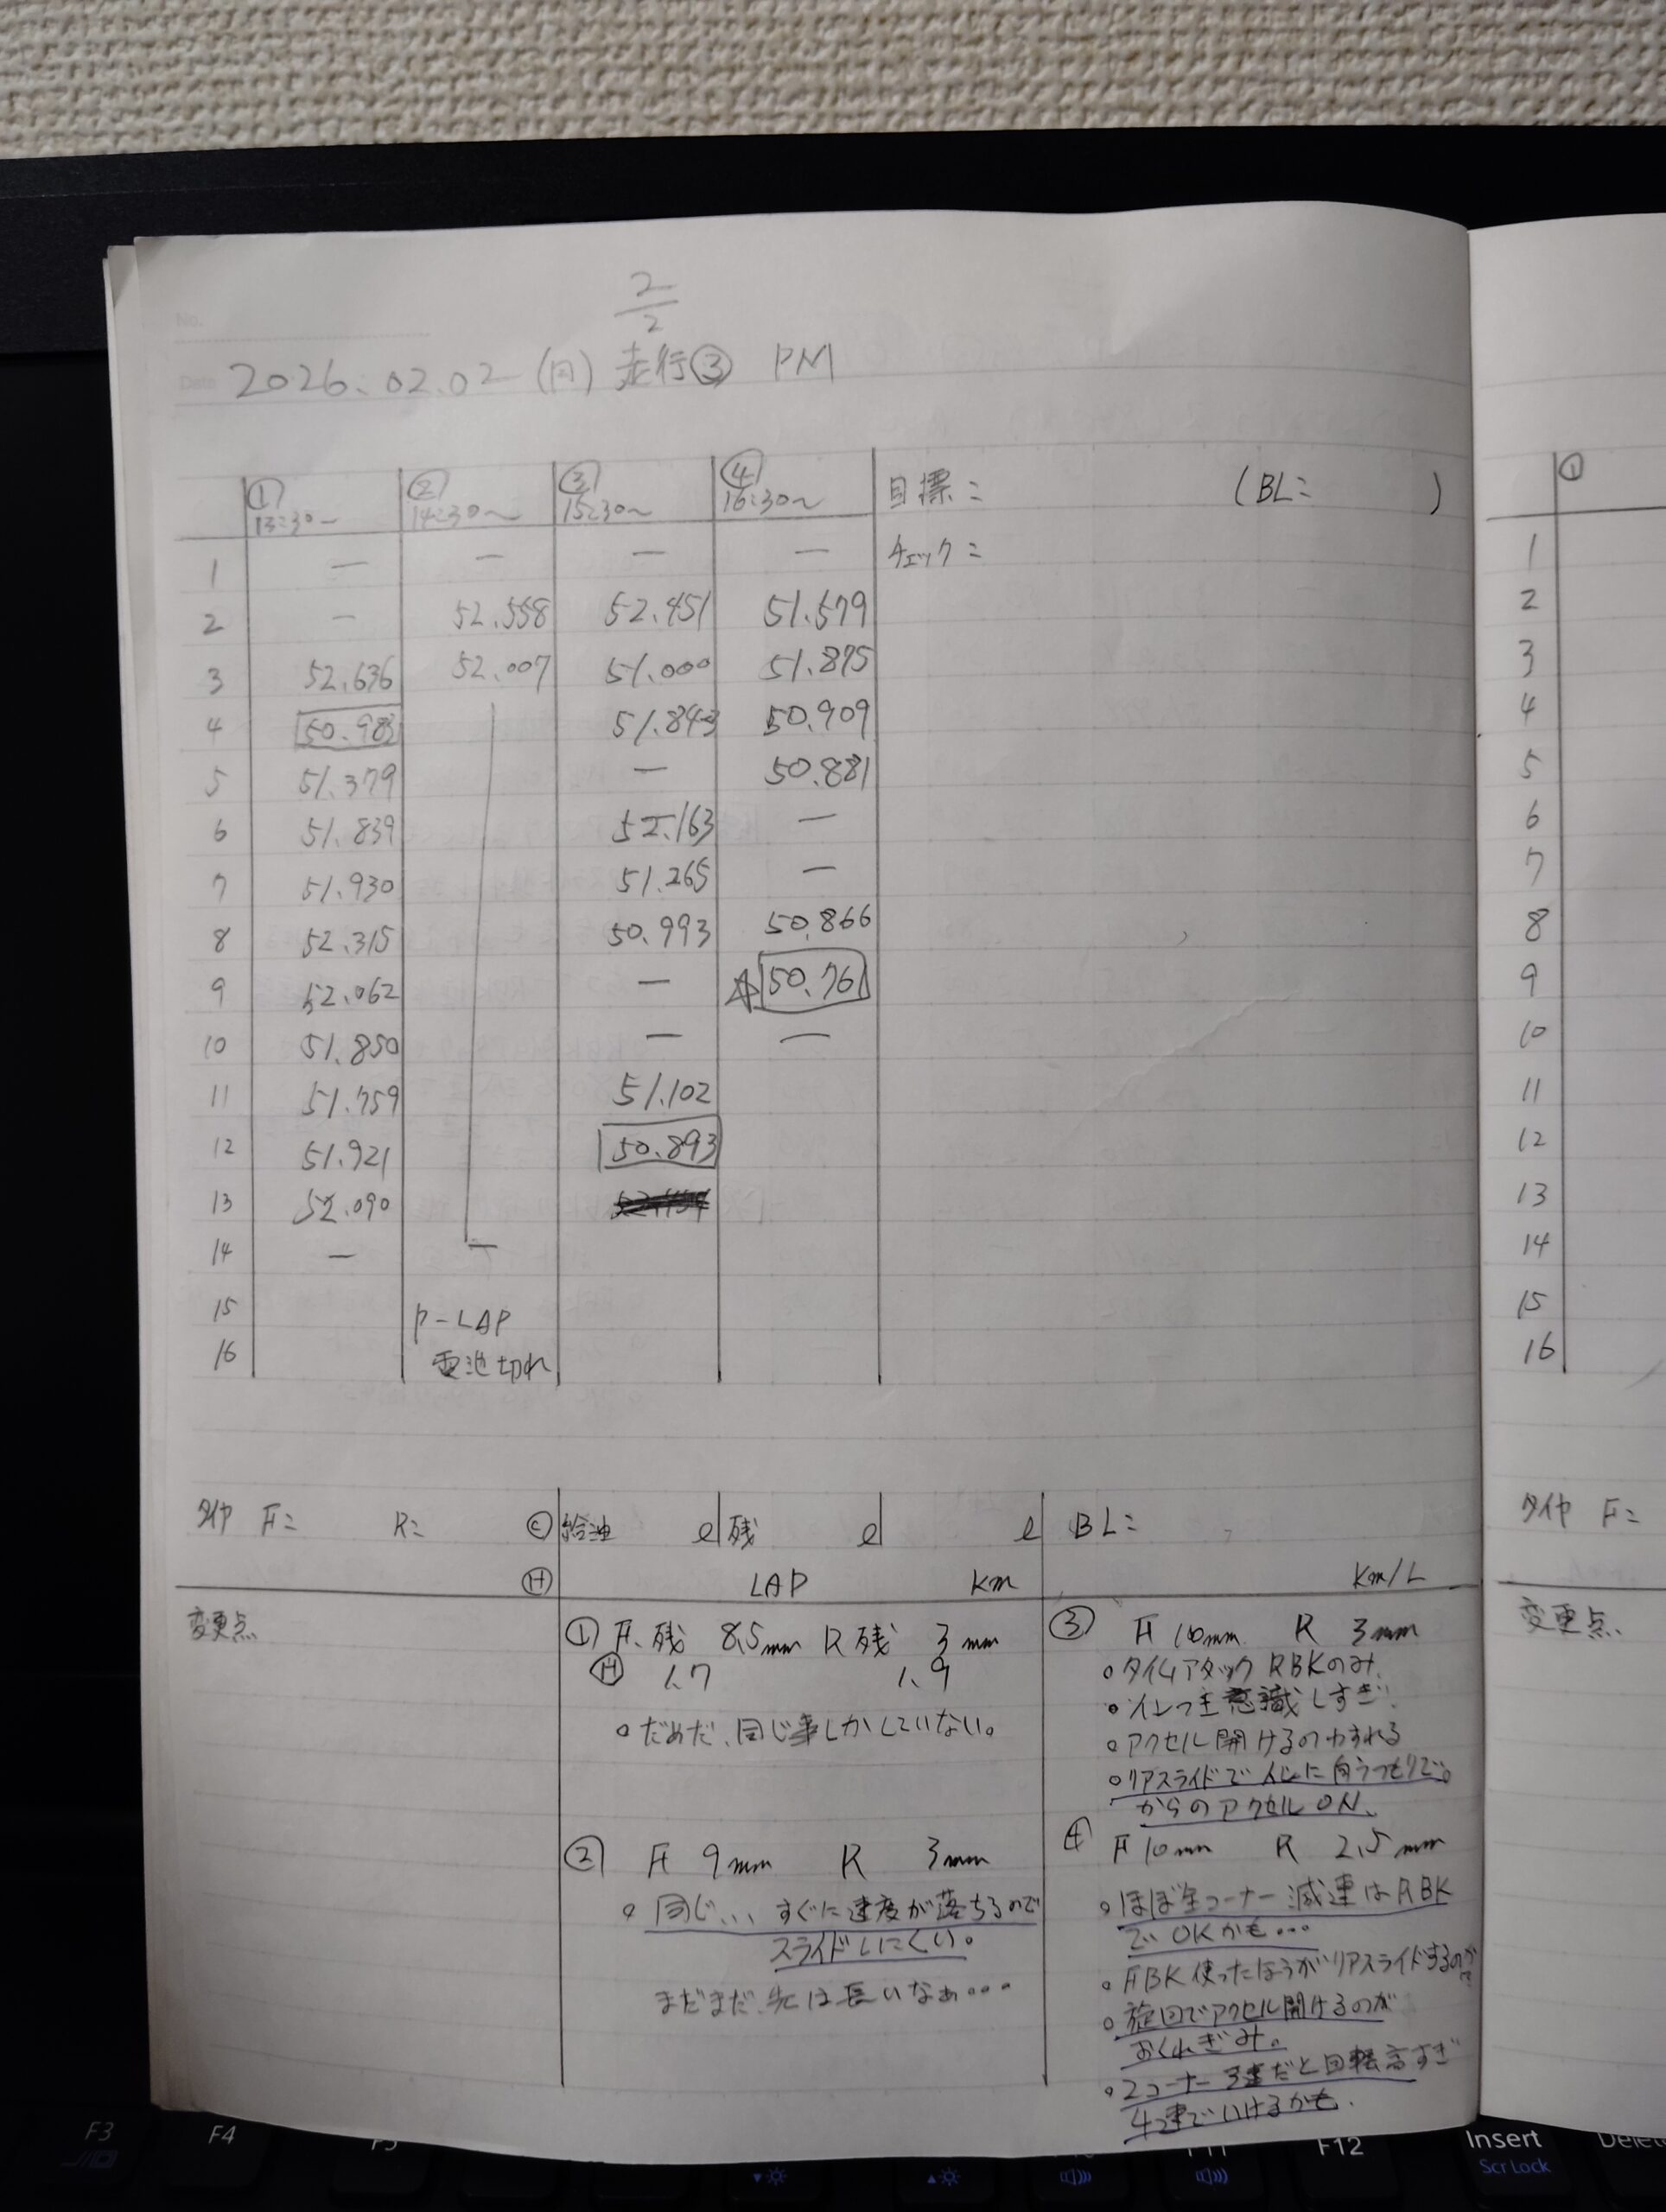 No.
2/2
Date 2026.02.02 (月) 走行③ PM
① ② ③ ④
13:30〜 14:30〜 15:30〜 16:30〜 目標= (BL= )
1 — — — — チェック=
2 — 52.558 52.451 51.579
3 52.636 52.007 51.000 51.875
4 50.983 51.843 50.909
5 51.379 — 50.881
6 51.839 52.163 —
7 51.930 51.265 —
8 52.315 50.993 50.866
9 52.062 — ☆50.761
10 51.850 — —
11 51.759 51.102
12 51.921 50.893
13 52.090
14 — —
15 P-LAP
16 電池切れ
タイヤ F= R= Ⓒ 給油 ℓ 残 ℓ ℓ BL=
Ⓗ LAP Km Km/L
変更点
① F.残 8.5mm R残 3mm
Ⓗ 1.7 1.9
○だめだ、同じ事しかしていない。
② F 9mm R 3mm
○同じ... すぐに速度が落ちるので
スライドしにくい。
まだまだ、先は長いなぁ…
③ F 10mm R 3mm
○タイムアタック RBKのみ.
○イン主意識しすぎ.
○アクセル開けるのわすれる
○リアスライドで に向うつもりで。
からのアクセルON.
④ F 10mm R 2.5mm
○ほぼ全コーナー減速はRBK
でOKかも…
○FBK使ったほうがリアスライドするのか
○旋回でアクセル開けるのが
おくれぎみ。
○2コーナー3速だと回転高すぎ
4速でいけるかも.
①
1
2
3
4
5
6
7
8
9
10
11
12
13
14
15
16
タイヤ F=
変更点
F3
F4
F5
F11
F12
Insert
Scr Lock
Delete